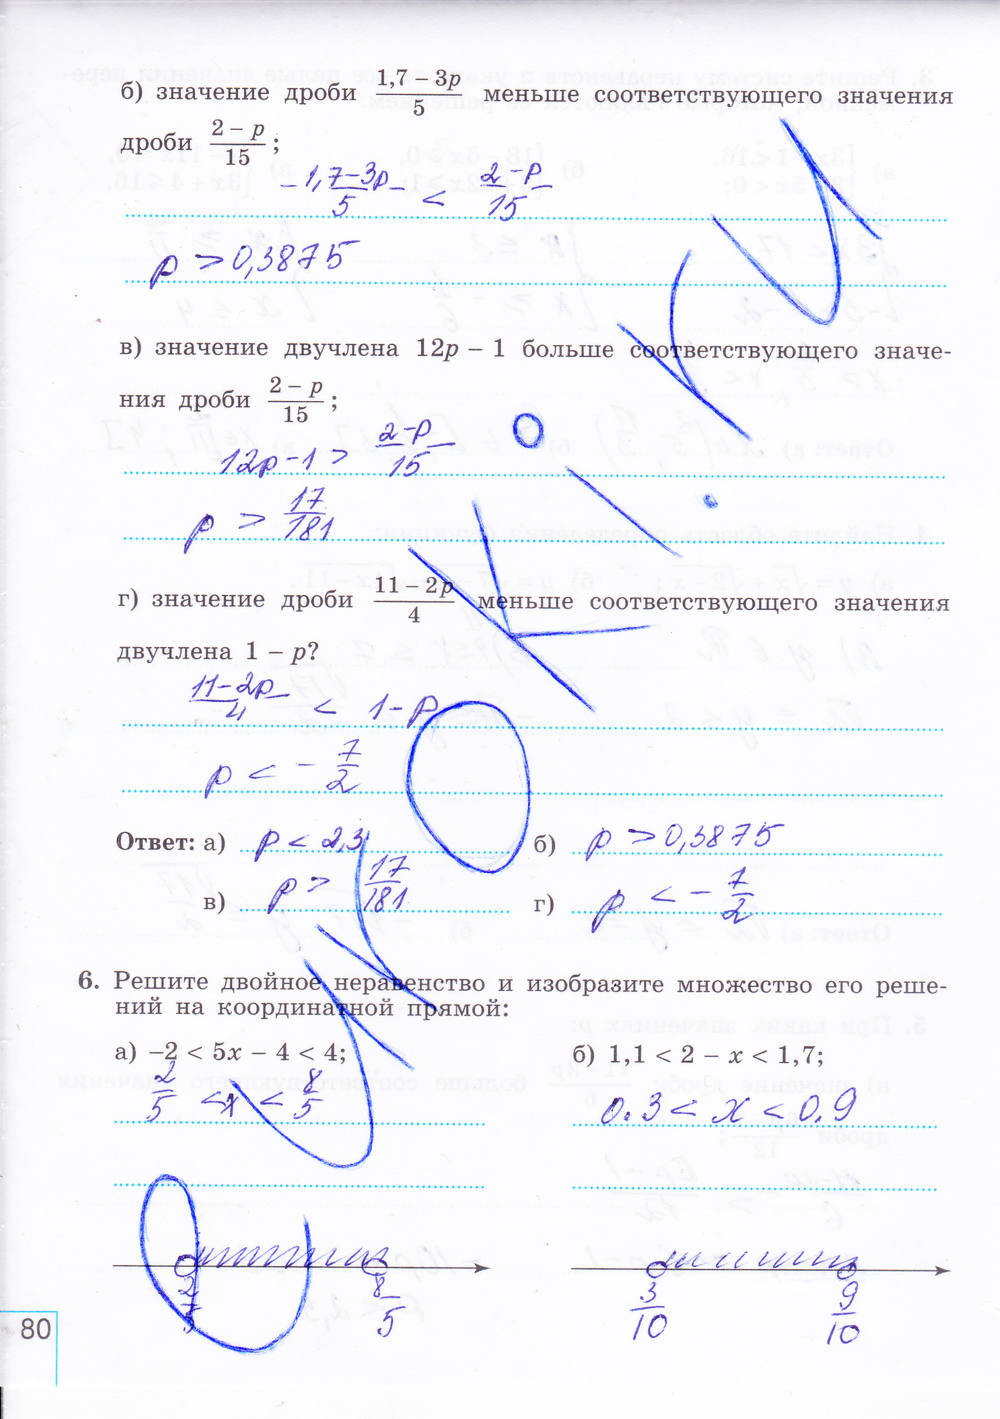 б) значение дроби (1,7 – 3p)/5 меньше соответствующего значения
дроби (2 – p)/15;
(1,7-3p)/5 < (2-p)/15
p > 0,3875
в) значение двучлена 12p – 1 больше соответствующего значе-
ния дроби (2 – p)/15;
12p-1 > (2-p)/15
p > 17/181
г) значение дроби (11 – 2p)/4 меньше соответствующего значения
двучлена 1 – p?
(11-2p)/4 < 1-p
p < - 7/2
Ответ: а) p < 2,3 б) p > 0,3875
в) p > 17/181 г) p < - 7/2
6. Решите двойное неравенство и изобразите множество его реше-
ний на координатной прямой:
а) –2 < 5x – 4 < 4; б) 1,1 < 2 – x < 1,7;
2/5 < x < 8/5 0.3 < x < 0.9
2/5 8/5 3/10 9/10
80